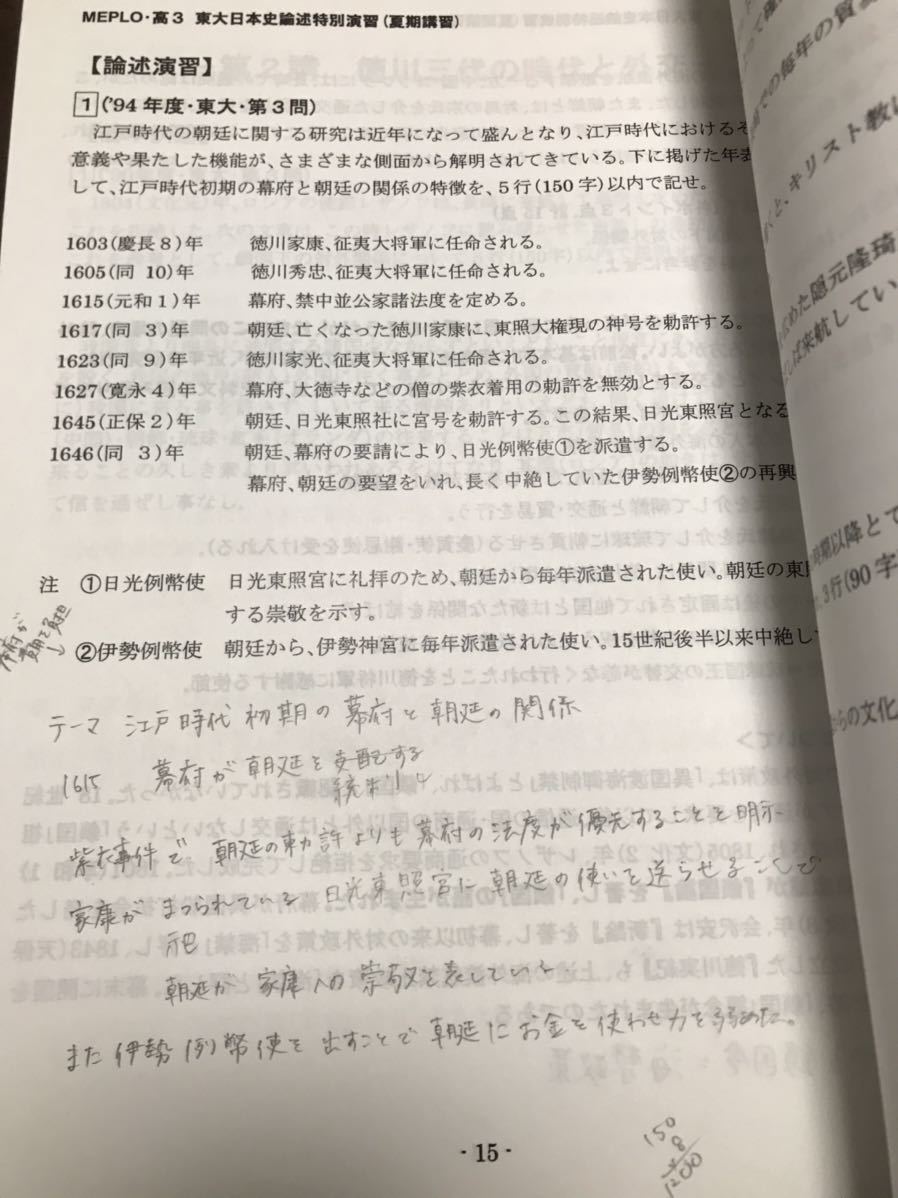 MEPLO・高3 東大日本史論述特別演習(夏期講習)
【論述演習】
1 ('94年度・東大・第3問)
江戸時代の朝廷に関する研究は近年になって盛んとなり、江戸時代におけるそ
意義や果たした機能が、さまざまな側面から解明されてきている。下に掲げた年表
して、江戸時代初期の幕府と朝廷の関係の特徴を、5行(150字)以内で記せ。
1603(慶長8)年 徳川家康、征夷大将軍に任命される。
1605(同 10)年 徳川秀忠、征夷大将軍に任命される。
1615(元和1)年 幕府、禁中並公家諸法度を定める。
1617(同 3)年 朝廷、亡くなった徳川家康に、東照大権現の神号を勅許する。
1623(同 9)年 徳川家光、征夷大将軍に任命される。
1627(寛永4)年 幕府、大徳寺などの僧の紫衣着用の勅許を無効とする。
1645(正保2)年 朝廷、日光東照社に宮号を勅許する。この結果、日光東照宮となる
1646(同 3)年 朝廷、幕府の要請により、日光例幣使①を派遣する。
幕府、朝廷の要望をいれ、長く中絶していた伊勢例幣使②の再興
注 ①日光例幣使 日光東照宮に礼拝のため、朝廷から毎年派遣された使い。朝廷の東
する崇敬を示す。
②伊勢例幣使 朝廷から、伊勢神宮に毎年派遣された使い。15世紀後半以来中絶し
幕府が
費用を負担
テーマ 江戸時代初期の幕府と朝廷の関係
1615 幕府が朝廷を支配する
統制し
紫衣事件で 朝廷の勅許よりも幕府の法度が優先することを明示
家康がまつられている 日光東照宮に朝廷の使いを送らせることで
祀
朝廷が家康への崇敬を表している。
また伊勢例幣使を出すことで朝廷にお金を使わせ力を弱めた。
150
8
1200
- 15 -
での毎年の貿
と、キリスト教
広めた隠元隆琦
しば来航してい
時期以降とて
3行(90字
らの文化